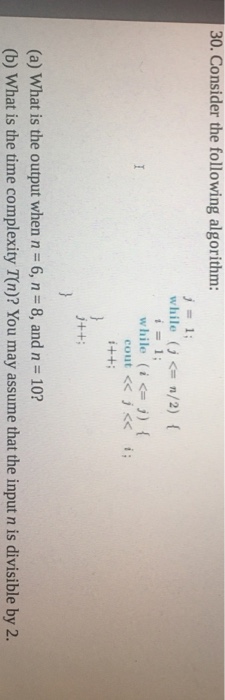 30. Consider the following algorithm:
j = 1;
while (j <= n/2) {
i = 1;
while (i <= j) {
cout << j << i;
i++;
}
j++;
}
(a) What is the output when n = 6, n = 8, and n = 10?
(b) What is the time complexity T(n)? You may assume that the input n is divisible by 2.